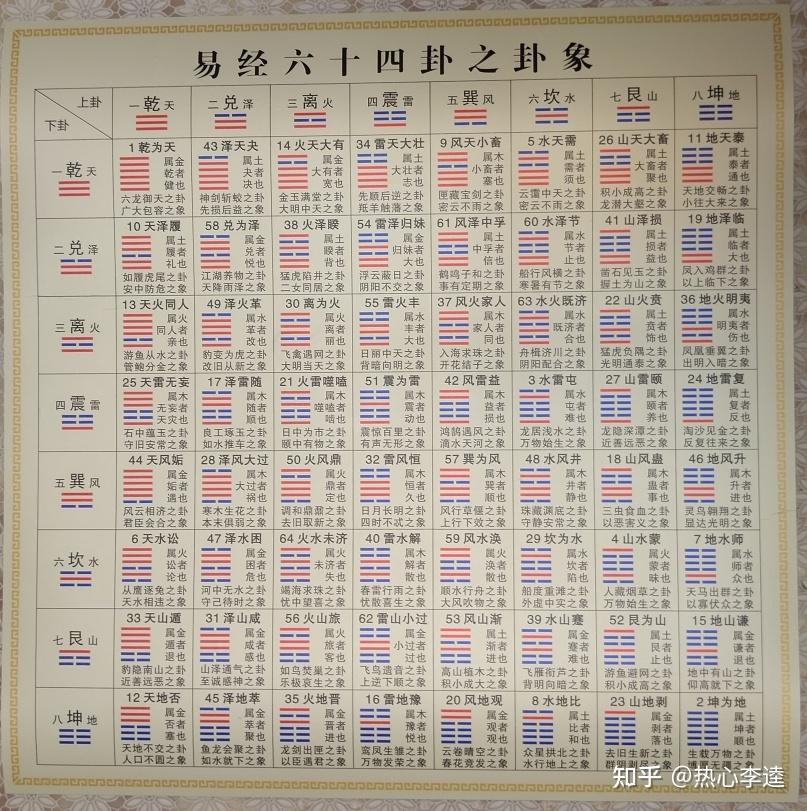 易经六十四卦之卦象
上卦
下卦
一乾天 二兑泽 三离火 四震雷 五巽风 六坎水 七艮山 八坤地
一乾天
1乾为天 43泽天夬 14火天大有 34雷天大壮 9风天小畜 5水天需 26山天大畜 11地天泰
属金 属土 属金 属土 属木 属土 属土 属土
乾者 夬者 大有者 大壮者 小畜者 需者 大畜者 泰者
健也 决也 宽也 志也 塞也 须也 聚也 通也
六龙御天之卦 神剑斩蛟之卦 金玉满堂之卦 先顺后逆之卦 匣藏宝剑之卦 云雷中天之卦 积小成高之卦 天地交畅之卦
广大包容之象 先损后益之象 大明中天之象 羝羊触藩之象 密云不雨之象 密云不雨之象 龙潜大壑之象 小往大来之象
二兑泽
10天泽履 58兑为泽 38火泽睽 54雷泽归妹 61风泽中孚 60水泽节 41山泽损 19地泽临
属土 属金 属土 属金 属土 属水 属土 属土
履者 兑者 睽者 归妹者 中孚者 节者 损者 临者
礼也 悦也 背也 大也 信也 止也 益也 大也
如履虎尾之卦 江湖养物之卦 猛虎陷井之卦 浮云蔽日之卦 鹤鸣子和之卦 船行风横之卦 凿石见玉之卦 凤入鸡群之卦
安中防危之象 天降雨泽之象 二女同居之象 阴阳不交之象 事有定期之象 寒暑有节之象 握土为山之象 以上临下之象
三离火
13天火同人 49泽火革 30离为火 55雷火丰 37风火家人 63水火既济 22山火贲 36地火明夷
属火 属水 属火 属水 属木 属水 属土 属水
同人者 革者 离者 丰者 家人者 既济者 贲者 明夷者
亲也 改也 丽也 大也 同也 合也 饰也 伤也
游鱼从水之卦 豹变为虎之卦 飞禽遇网之卦 日丽中天之卦 入海求珠之卦 舟楫济川之卦 猛虎负隅之卦 凤凰垂翼之卦
管鲍分金之象 改旧从新之象 大明当天之象 背暗向明之象 开花结子之象 阴阳配合之象 光明通泰之象 出明入暗之象
四震雷
25天雷无妄 17泽雷随 21火雷噬嗑 51震为雷 42风雷益 3水雷屯 27山雷颐 24地雷复
属木 属木 属木 属木 属木 属水 属木 属土
无妄者 随者 噬嗑者 震者 益者 屯者 颐者 复者
天灾也 顺也 啮也 动也 损也 难也 养也 反也
石中蕴玉之卦 良工琢玉之卦 日中为市之卦 震惊百里之卦 鸿鹄遇风之卦 龙居浅水之卦 龙隐深潭之卦 淘沙见金之卦
守旧安常之象 如水推车之象 颐中有物之象 有声无形之象 滴水天河之象 万物始生之象 近善远恶之象 反复往来之象
五巽风
44天风姤 28泽风大过 50火风鼎 32雷风恒 57巽为风 48水风井 18山风蛊 46地风升
属金 属木 属火 属木 属木 属木 属木 属木
姤者 大过者 鼎者 恒者 巽者 井者 蛊者 升者
遇也 祸也 定也 久也 顺也 静也 事也 进也
风云相济之卦 寒木生花之卦 调和鼎鼐之卦 日月长明之卦 风行草偃之卦 珠藏渊底之卦 三虫食血之卦 灵鸟翱翔之卦
君臣会合之象 本末俱弱之象 去旧取新之象 四时不忒之象 上行下效之象 守静安常之象 以恶害义之象 显达光明之象
六坎水
6天水讼 47泽水困 64火水未济 40雷水解 59风水涣 29坎为水 4山水蒙 7地水师
属火 属金 属火 属木 属火 属水 属火 属水
讼者 困者 未济者 解者 涣者 坎者 蒙者 师者
论也 危也 失也 散也 散也 陷也 昧也 众也
从鹰逐兔之卦 河中无水之卦 竭海求珠之卦 春雷行雨之卦 顺水行舟之卦 船度重滩之卦 人藏烟草之卦 天马出群之卦
天水相违之象 守己待时之象 忧中望喜之象 忧散喜生之象 大风吹物之象 外虚中实之象 万物始生之象 以寡伏众之象
七艮山
33天山遁 31泽山咸 56火山旅 62雷山小过 53风山渐 39水山蹇 52艮为山 15地山谦
属金 属金 属火 属金 属土 属金 属土 属金
遁者 咸者 旅者 小过者 渐者 蹇者 艮者 谦者
退也 感也 客也 过也 进也 难也 止也 退也
豹隐南山之卦 山泽通气之卦 如鸟焚巢之卦 飞鸟遗音之卦 高山植木之卦 飞雁衔芦之卦 游鱼避网之卦 地中有山之卦
近善远恶之象 至诚感神之象 乐极哀生之象 上逆下顺之象 积小成大之象 背明向暗之象 积小成高之象 仰高就下之象
八坤地
12天地否 45泽地萃 35火地晋 16雷地豫 20风地观 8水地比 23山地剥 2坤为地
属金 属金 属金 属木 属金 属土 属金 属土
否者 萃者 晋者 豫者 观者 比者 剥者 坤者
塞也 聚也 进也 悦也 观也 和也 落也 顺也
天地不交之卦 鱼龙会聚之卦 龙剑出匣之卦 鸾凤生雏之卦 云卷晴空之卦 众星拱北之卦 去旧生新之卦 生载万物之卦
人口不圆之象 如水就下之象 以臣遇君之象 万物发荣之象 春花竞发之象 水行地上之象
知乎 @热心李逵